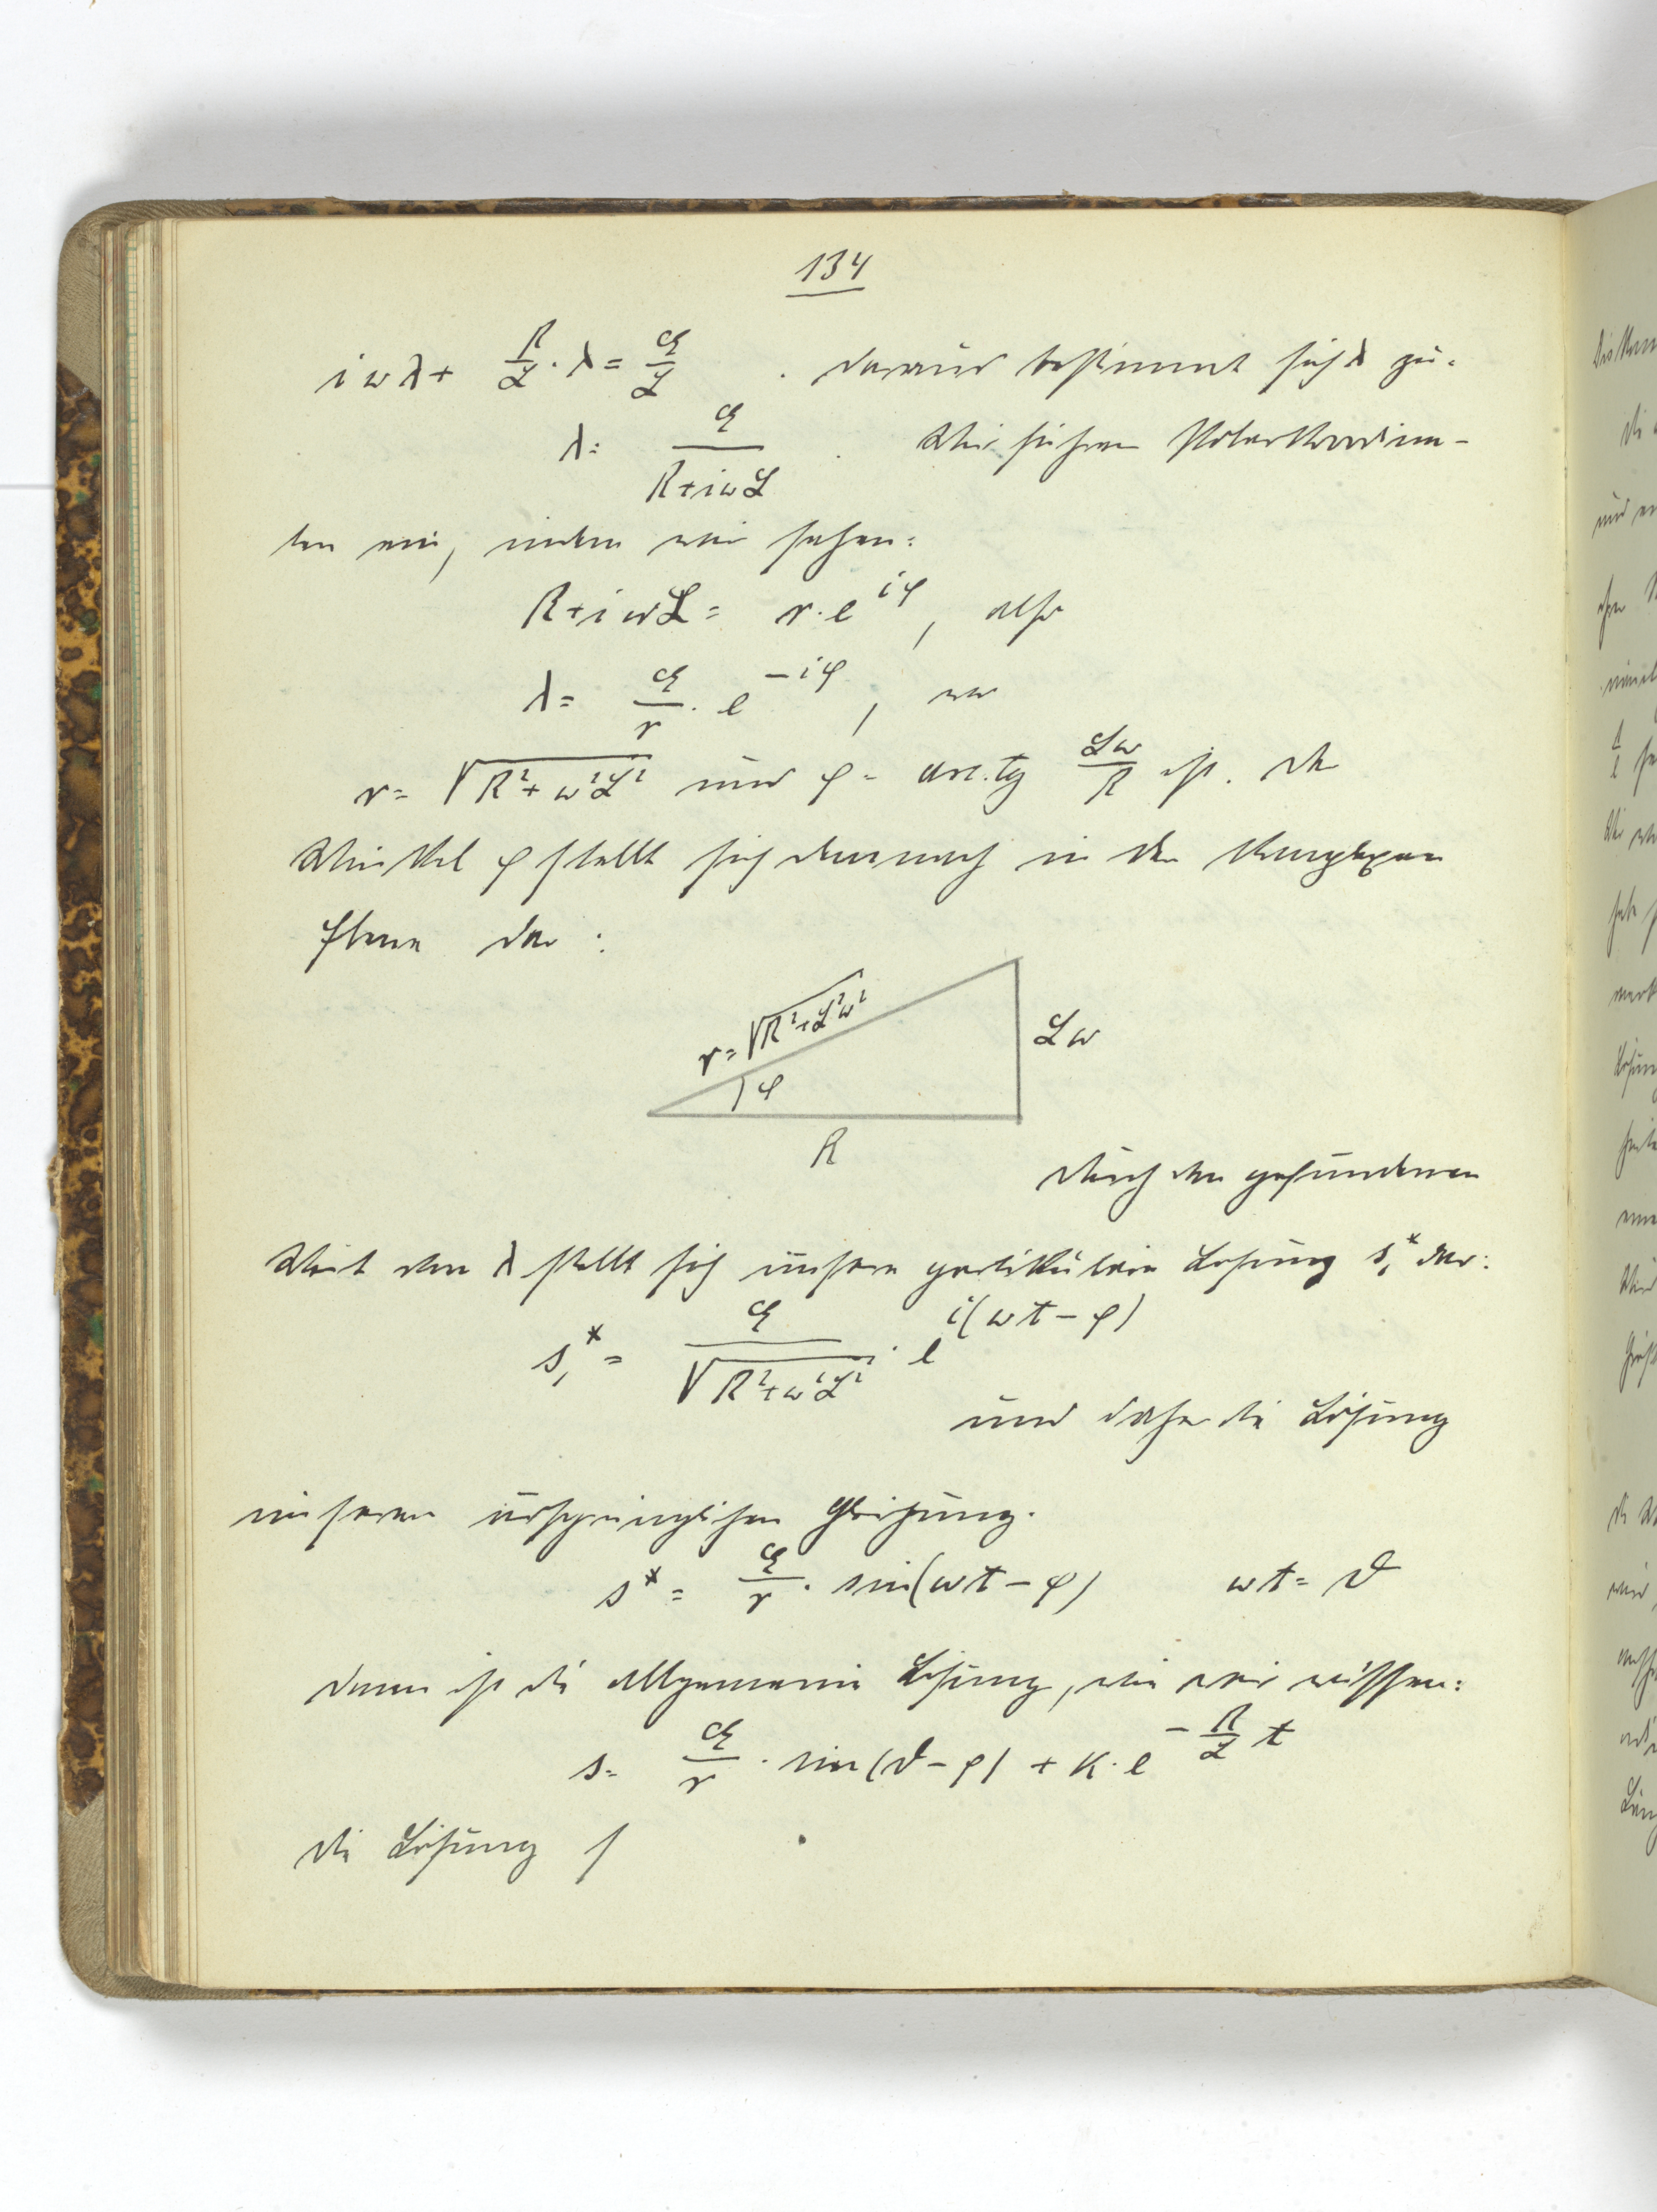 134
iωλ + R/L · λ = E/L . daraus bestimmt sich λ zu:
λ = E/(R+iωL) . Wir führen Polarkoordina-
ten ein, indem wir setzen:
R+iωL = r·e^{iφ}, also
λ = E/r · e^{-iφ}, wo
r = √(R²+ω²L²) und φ = arc.tg Lω/R ist. Der
Winkel φ stellt sich demnach in der komplexen
Ebene dar:
r = √(R²+L²ω²)
Lω
φ
R
durch den gefundenen
Wert von λ stellt sich unsere partikuläre Lösung s₁* dar:
s₁* = E/√(R²+ω²L²) · e^{i(ωt-φ)}
und daher die Lösung
unserer ursprünglichen Gleichung.
s* = E/r · sin(ωt-φ) ωt = ϑ
dann ist die allgemeine Lösung, wie wir wissen:
s = E/r · sin(ϑ-φ) + K·e^{-R/L t}
die Lösung s